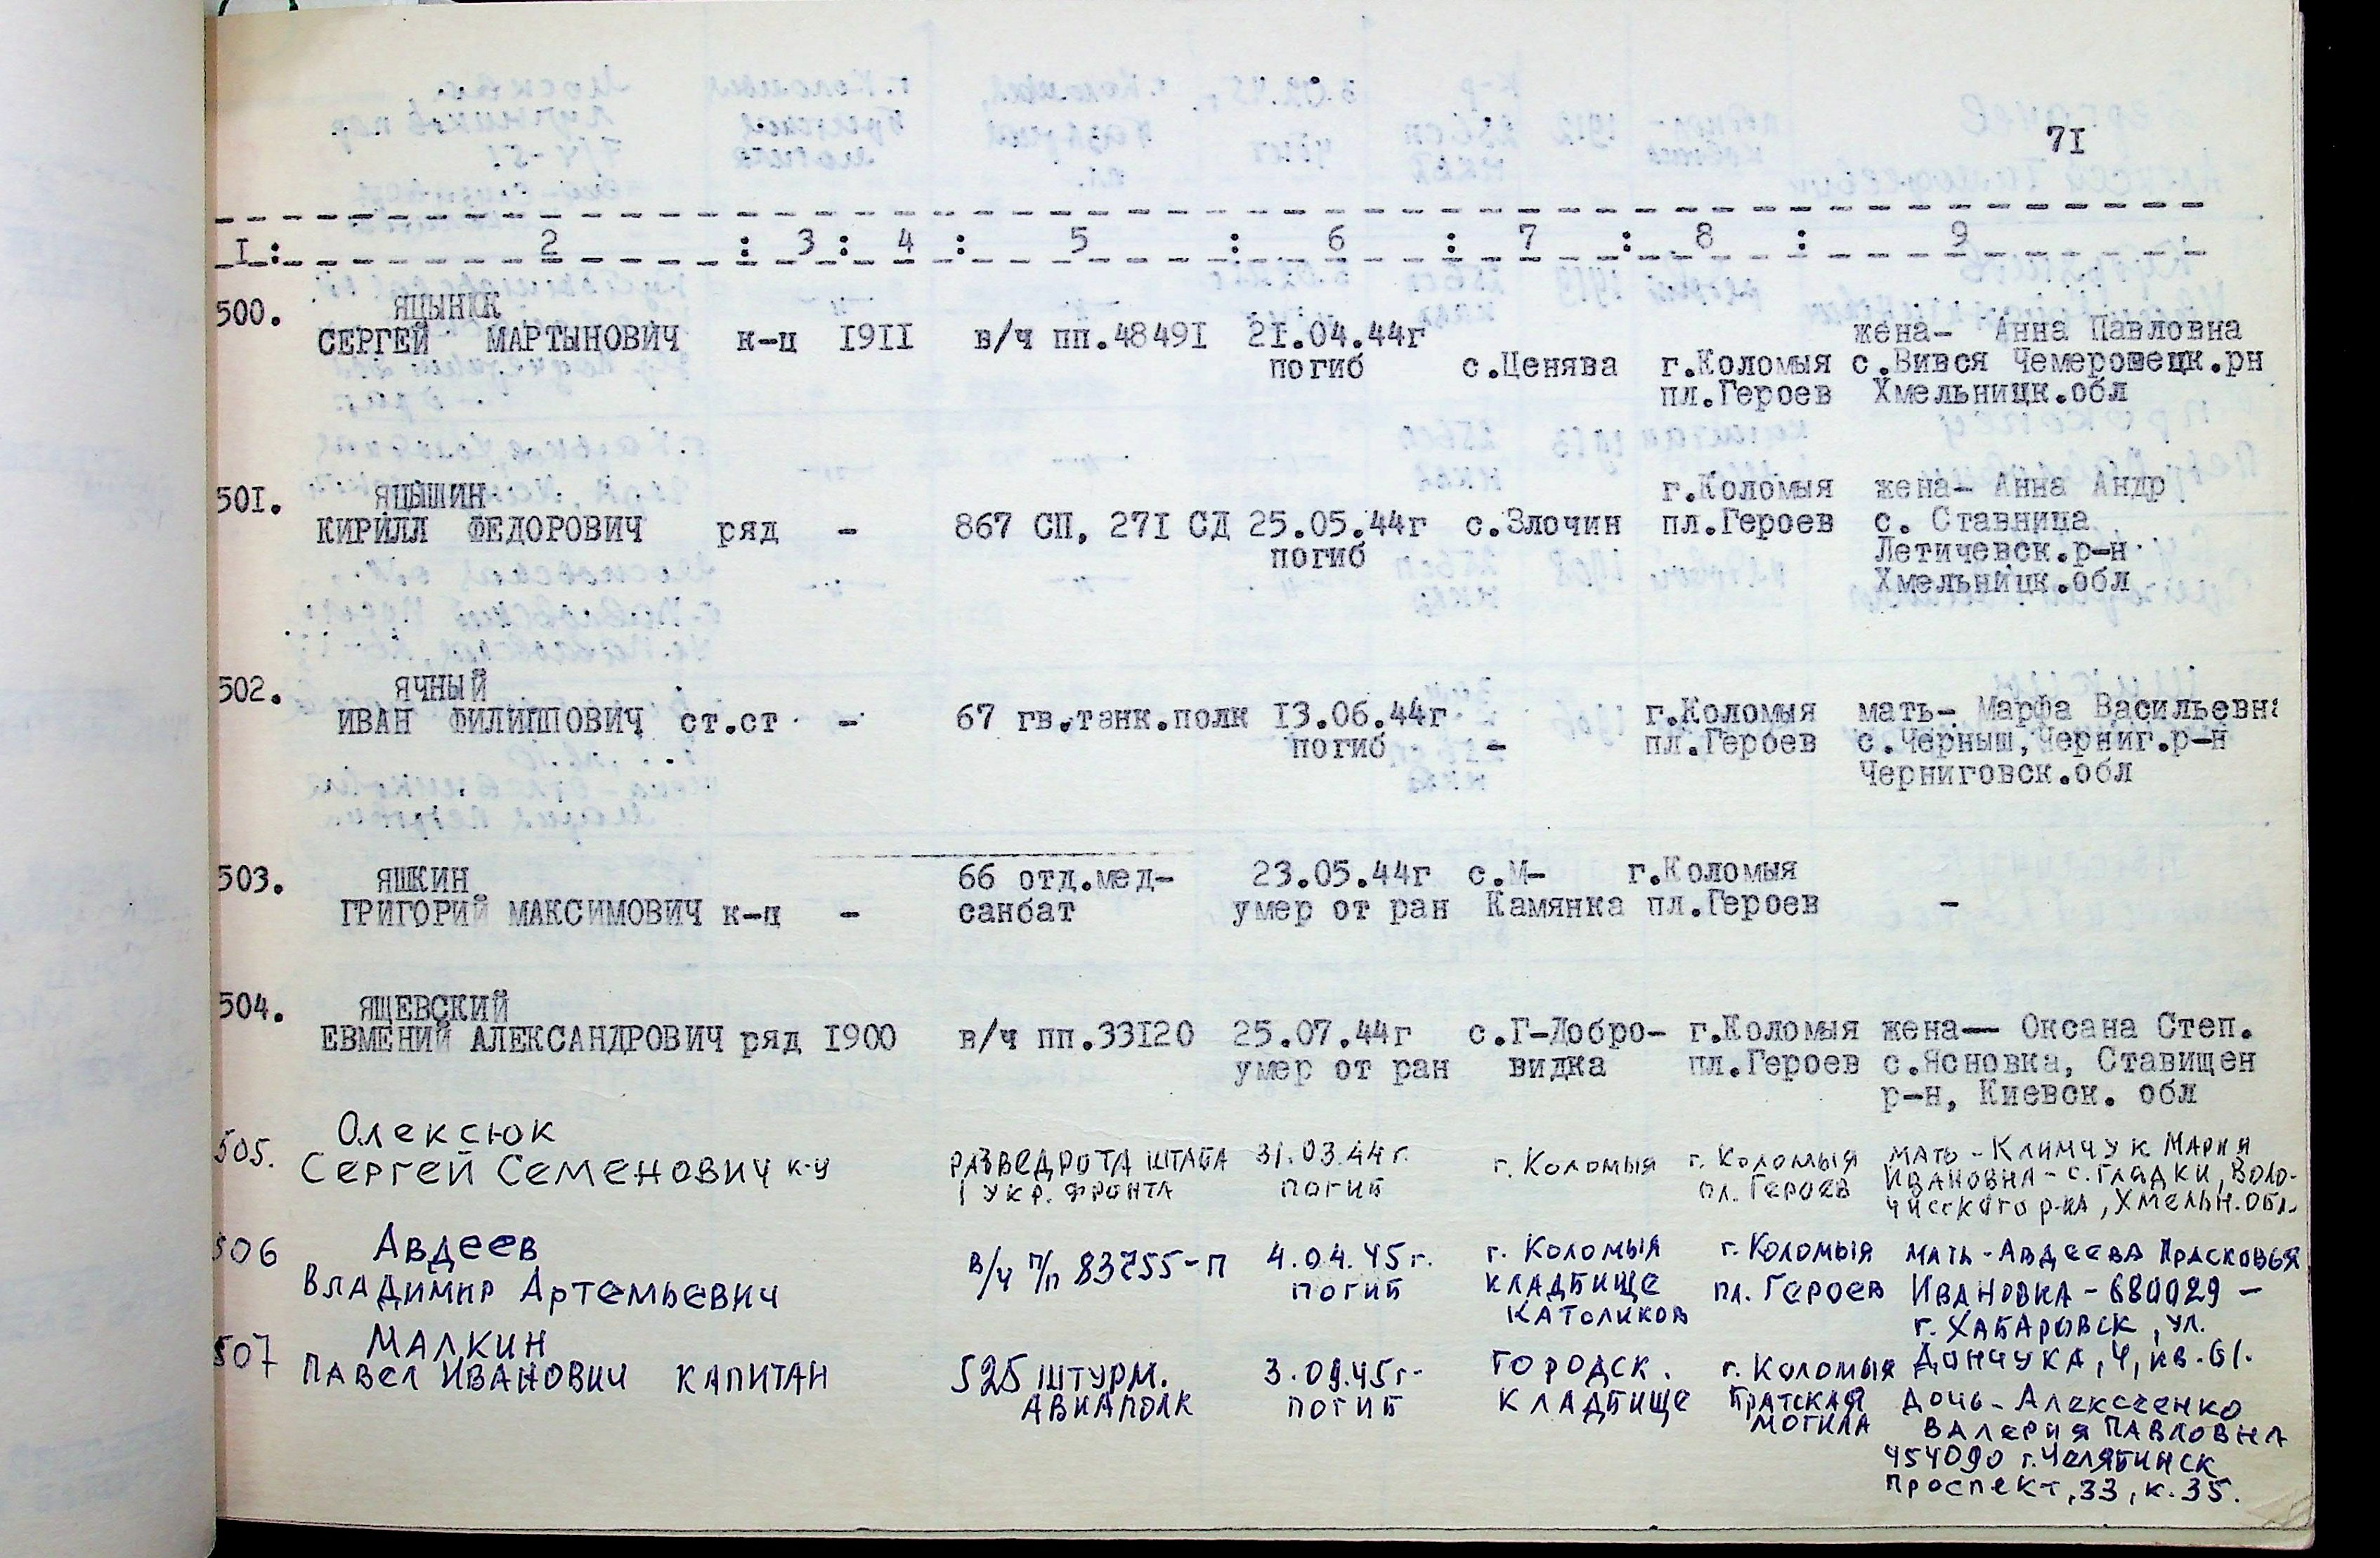 71
I : 2 : 3 : 4 : 5 : 6 : 7 : 8 : 9
500. ЯЦЫНЮК
СЕРГЕЙ МАРТЫНОВИЧ к-ц I9II в/ч пп.4849I 2I.04.44г жена- Анна Павловна
погиб с.Ценява г.Коломыя с.Вився Чемеровецк.рн
пл.Героев Хмельницк.обл
50I. ЯЦЫШИН г.Коломыя жена- Анна Андр
КИРИЛЛ ФЕДОРОВИЧ ряд - 867 СП, 27I СД 25.05.44г с.Злочин пл.Героев с. Ставница
погиб Летичевск.р-н
Хмельницк.обл
502. ЯЧНЫЙ
ИВАН ФИЛИППОВИЧ ст.ст - 67 гв.танк.полк I3.06.44г г.Коломыя мать- Марфа Васильевна
погиб - пл.Героев с.Черныш,Черниг.р-н
Черниговск.обл
503. ЯШКИН 66 отд.мед- 23.05.44г с.М- г.Коломыя
ГРИГОРИЙ МАКСИМОВИЧ к-ц - санбат умер от ран Камянка пл.Героев -
504. ЯЩЕВСКИЙ
ЕВМЕНИЙ АЛЕКСАНДРОВИЧ ряд I900 в/ч пп.33I20 25.07.44г с.Г-Добро- г.Коломыя жена— Оксана Степ.
умер от ран видка пл.Героев с.Ясновка, Ставищен
р-н, Киевск. обл
505. Олексюк
Сергей Семенович к-ц разведрота штаба 31.03.44г. г. Коломыя г. Коломыя мать - Климчук Мария
1 Укр. фронта погиб пл. Героев Ивановна - с. Гладки, Воло-
чисского р-на, Хмельн. обл.
506 Авдеев в/ч п/п 83755-П 4.04.45г. г. Коломыя г. Коломыя мать - Авдеева Прасковья
Владимир Артемьевич погиб кладбище пл. Героев Ивановна - 680029 -
католиков г. Хабаровск, ул.
507 Малкин Дончука, 4, кв. 61.
Павел Иванович капитан 525 штурм. 3.09.45г. Городск. г. Коломыя
авиаполк погиб кладбище братская дочь - Алексеенко
могила Валерия Павловна
454090 г. Челябинск
Проспект, 33, к. 35.